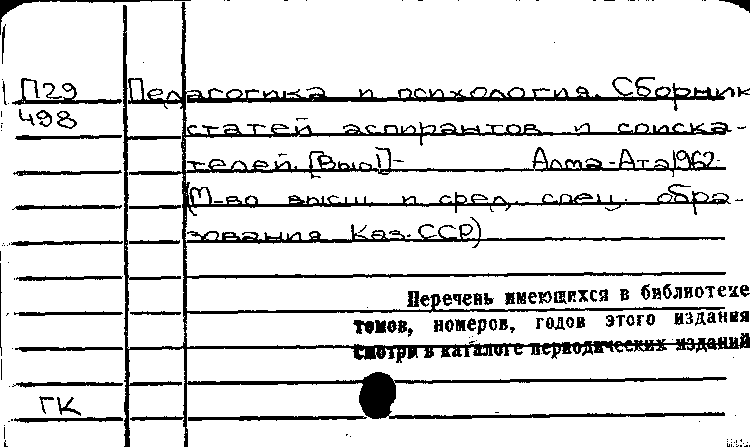 П29 Педагогика и психология. Сборник
498 статей аспирантов и соиска-
телей. [Вып.1]- Алма-Ата, 1962-
(М-во высш. и сред. спец. обра-
зования Каз.ССР)
Перечень имеющихся в библиотеке
томов, номеров, годов этого издания
смотри в каталоге периодических изданий
ГК